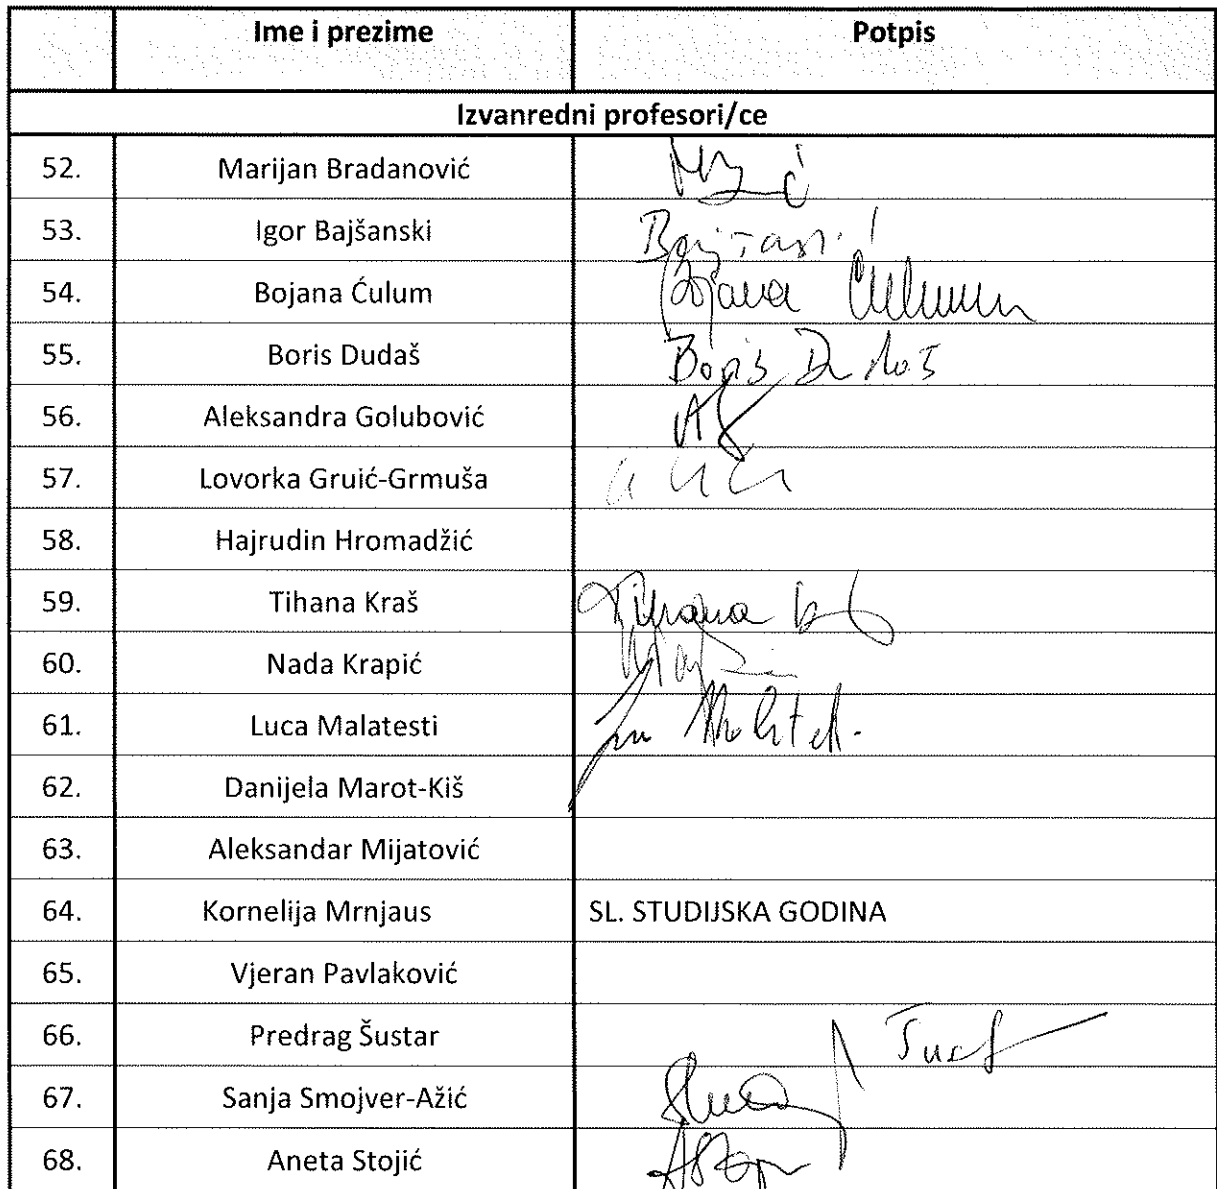 Ime i prezime Potpis
Izvanredni profesori/ce
52. Marijan Bradanović
53. Igor Bajšanski
54. Bojana Ćulum Bojana Ćulum
55. Boris Dudaš Boris Dudaš
56. Aleksandra Golubović
57. Lovorka Gruić-Grmuša
58. Hajrudin Hromadžić
59. Tihana Kraš Tihana
60. Nada Krapić
61. Luca Malatesti
62. Danijela Marot-Kiš
63. Aleksandar Mijatović
64. Kornelija Mrnjaus SL. STUDIJSKA GODINA
65. Vjeran Pavlaković
66. Predrag Šustar
67. Sanja Smojver-Ažić
68. Aneta Stojić